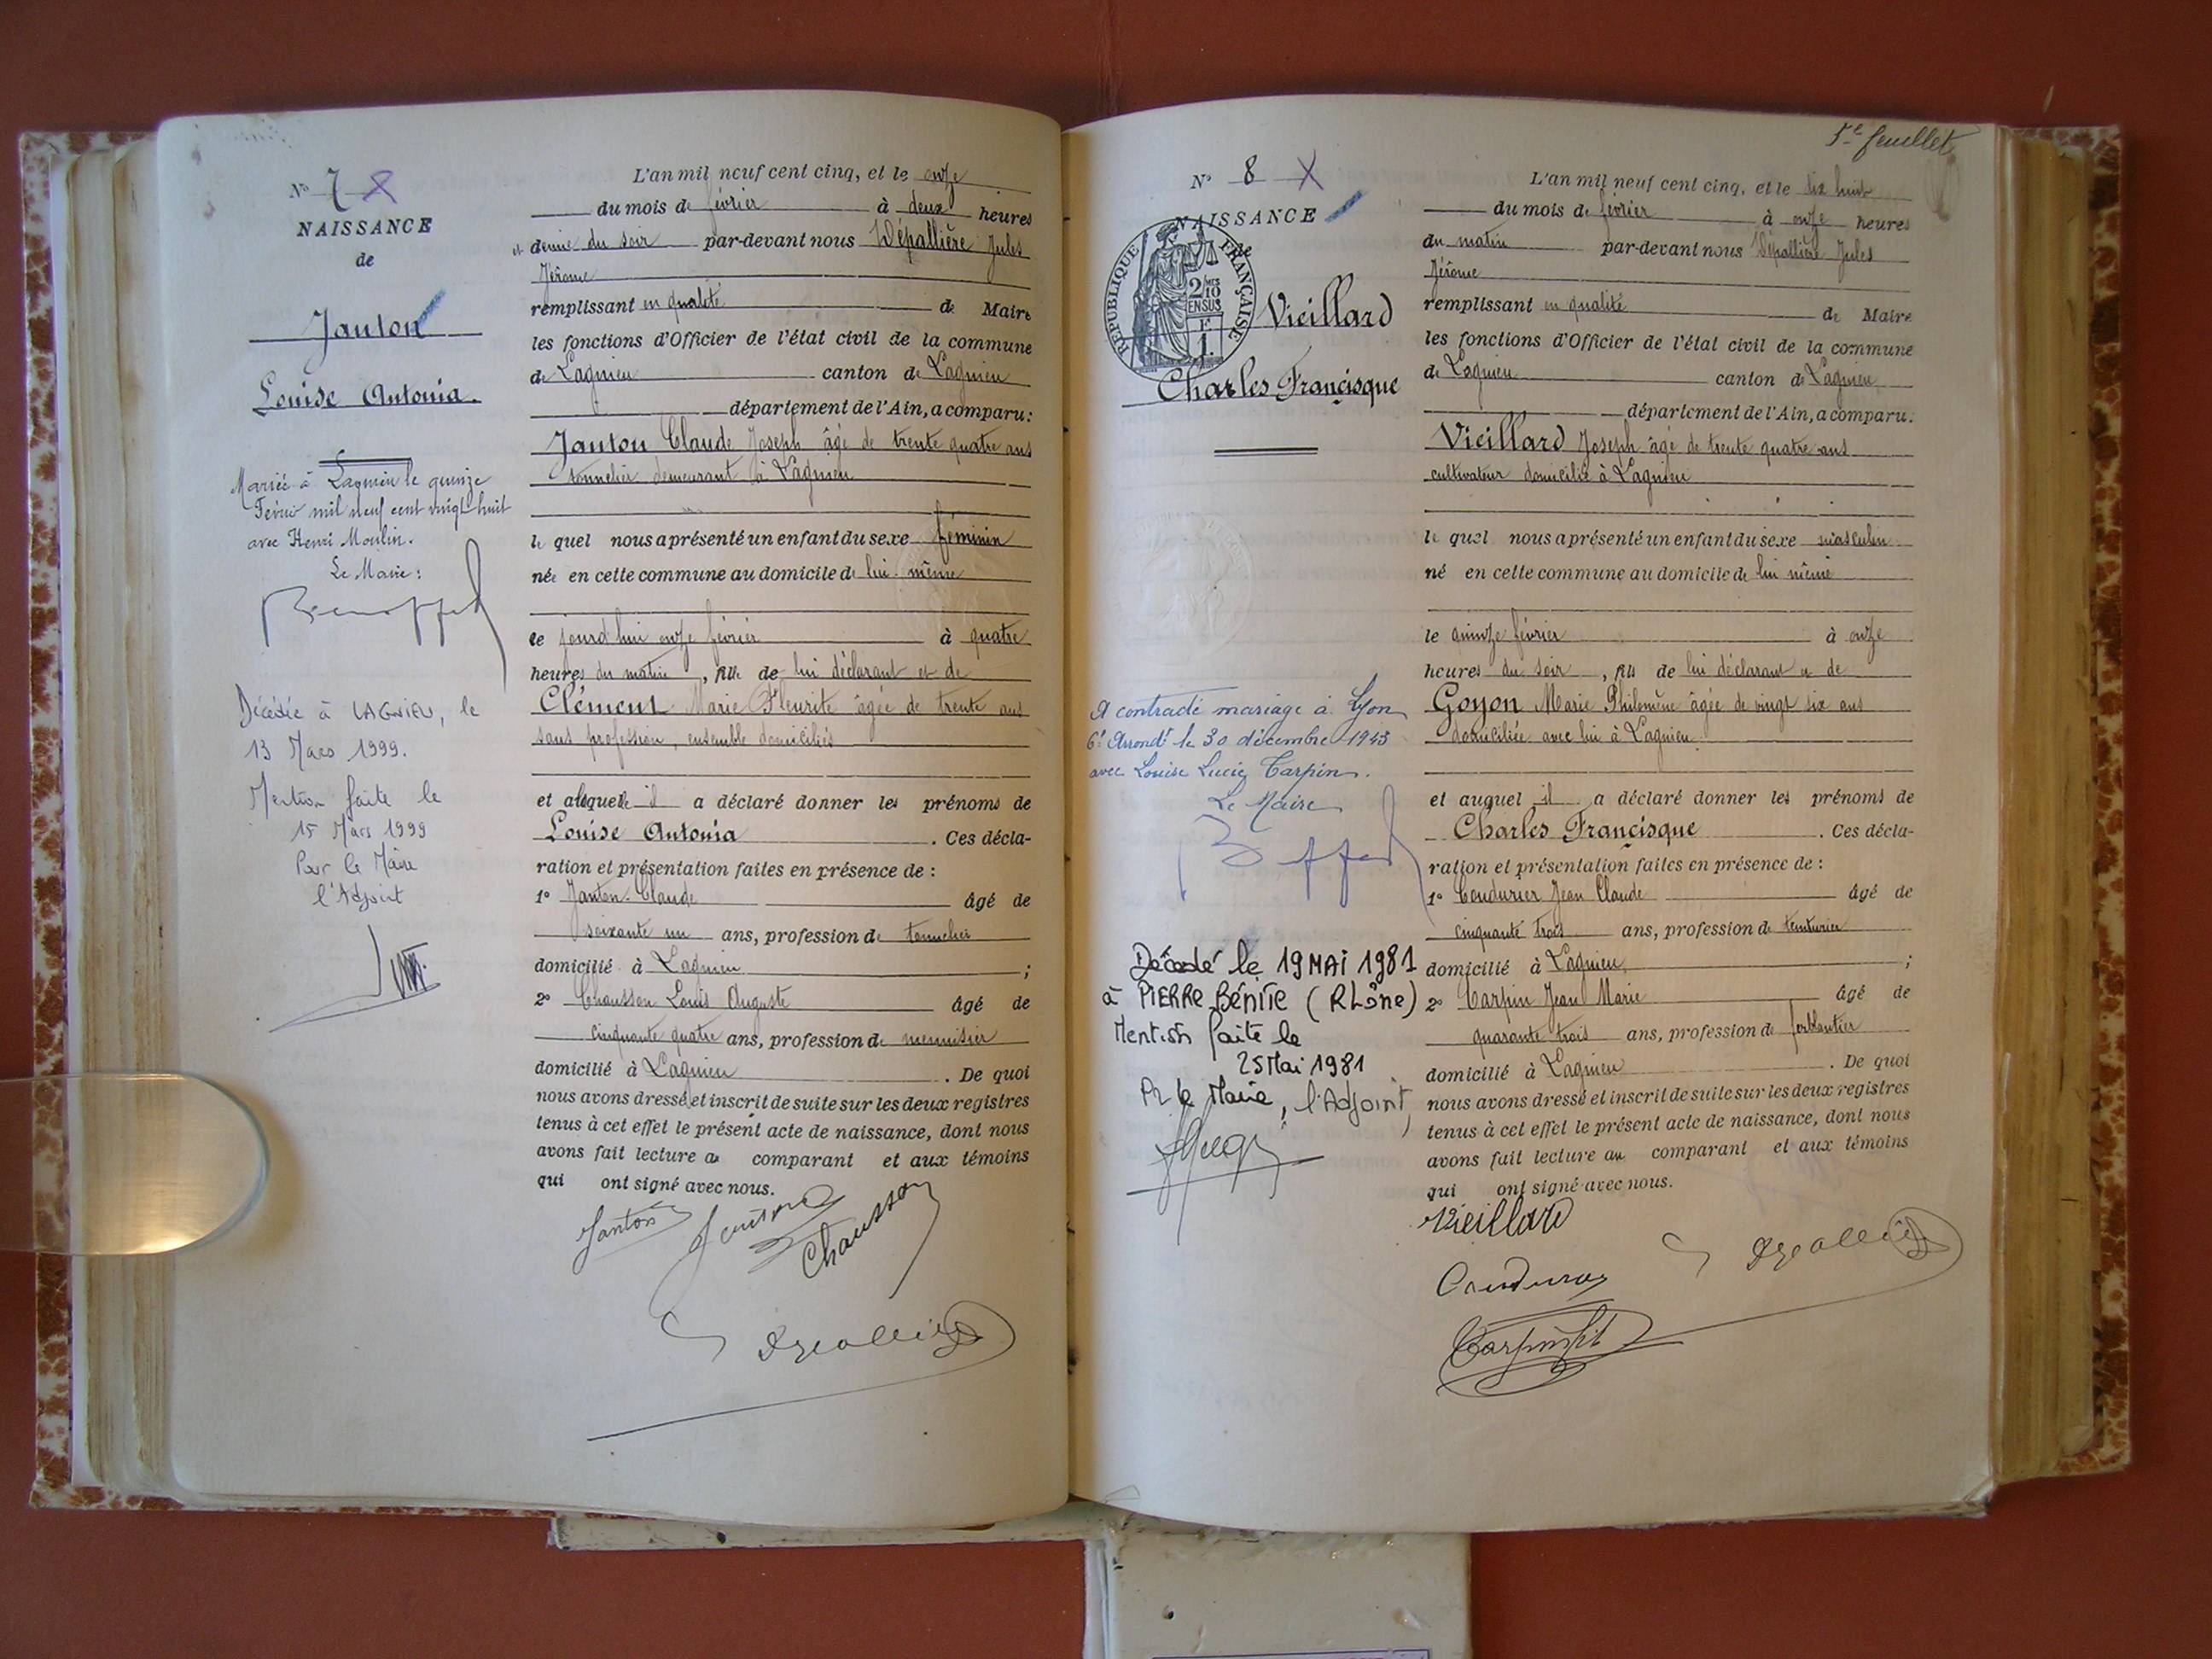 N° 7
NAISSANCE
de
Janton
Louise Antonia.
Mariée à Lagnieu le quinze
Février mil neuf cent vingt huit
avec Henri Moulin.
Le Maire :
Décédée à LAGNIEU, le
13 Mars 1999.
Mention faite le
15 Mars 1999
Pour le Maire
l'Adjoint
L'an mil neuf cent cinq, et le onze
du mois de février à deux heures
et demie du soir par-devant nous Dépallière Jules
Jérôme
remplissant en qualité de Maire
les fonctions d'Officier de l'état civil de la commune
de Lagnieu canton de Lagnieu
département de l'Ain, a comparu :
Janton Claude Joseph âgé de trente quatre ans
tonnelier demeurant à Lagnieu
le quel nous a présenté un enfant du sexe féminin
née en cette commune au domicile de lui-même
ce jourd'hui onze février à quatre
heures du matin, fille de lui déclarant et de
Clément Marie Fleurite âgée de trente ans
sans profession, ensemble domiciliés
et à laquelle il a déclaré donner les prénoms de
Louise Antonia. Ces décla-
ration et présentation faites en présence de :
1° Janton Claude âgé de
soixante un ans, profession de tonnelier
domicilié à Lagnieu ;
2° Chausson Louis Auguste âgé de
cinquante quatre ans, profession de menuisier
domicilié à Lagnieu. De quoi
nous avons dressé et inscrit de suite sur les deux registres
tenus à cet effet le présent acte de naissance, dont nous
avons fait lecture au comparant et aux témoins
qui ont signé avec nous.
Janton Janton Chausson
5e feuillet
N° 8
NAISSANCE
de
RÉPUBLIQUE FRANÇAISE
2/10 MES
EN SUS
1 F.
Vieillard
Charles Francisque
A contracté mariage à Lyon
6e Arrondt le 30 décembre 1943
avec Louise Lucie Carpin.
Le Maire
Décédé le 19 MAI 1981
à PIERRE-BÉNITE (Rhône)
Mention faite le
25 Mai 1981
Pr le Maire, l'Adjoint,
L'an mil neuf cent cinq, et le dix huit
du mois de février à onze heures
du matin par-devant nous Dépallière Jules
Jérôme
remplissant en qualité de Maire
les fonctions d'Officier de l'état civil de la commune
de Lagnieu canton de Lagnieu
département de l'Ain, a comparu :
Vieillard Joseph âgé de trente quatre ans
cultivateur domicilié à Lagnieu
le quel nous a présenté un enfant du sexe masculin
né en cette commune au domicile de lui même
le quinze février à onze
heures du soir, fils de lui déclarant et de
Goyon Marie Philomène âgée de vingt six ans
domiciliée avec lui à Lagnieu
et auquel il a déclaré donner les prénoms de
Charles Francisque. Ces décla-
ration et présentation faites en présence de :
1° Coudurier Jean Claude âgé de
cinquante trois ans, profession de teinturier
domicilié à Lagnieu ;
2° Carpin Jean Marie âgé de
quarante trois ans, profession de ferblantier
domicilié à Lagnieu. De quoi
nous avons dressé et inscrit de suite sur les deux registres
tenus à cet effet le présent acte de naissance, dont nous
avons fait lecture au comparant et aux témoins
qui ont signé avec nous.
Vieillard